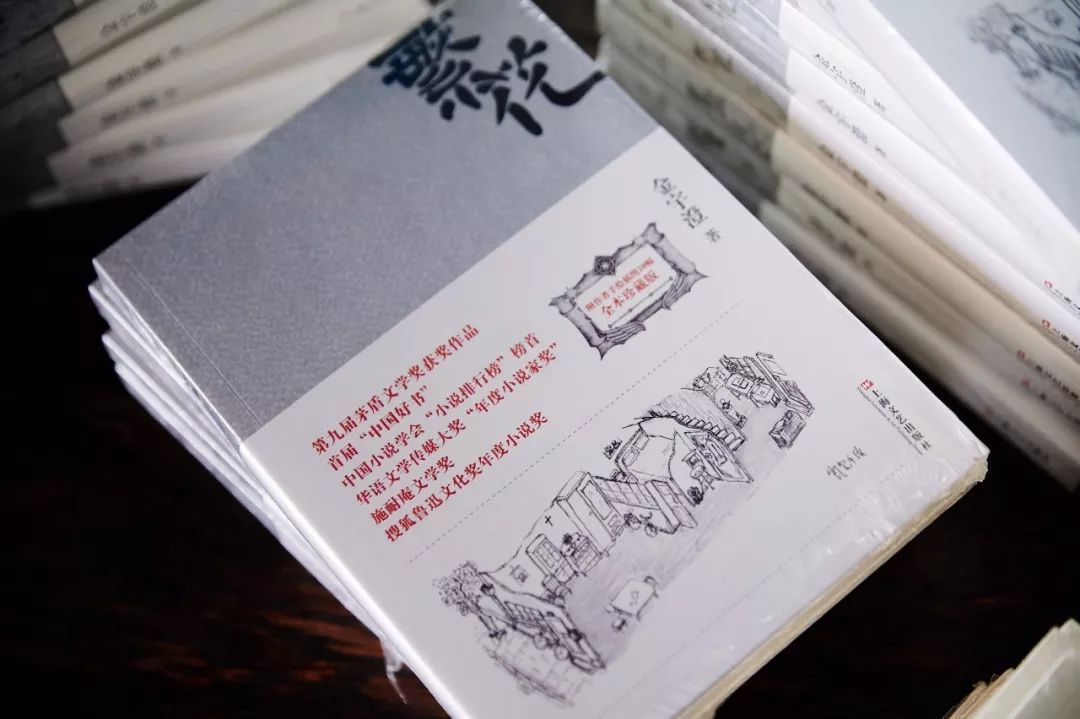 繁花
金宇澄 著
附作者手绘插图20幅
全本珍藏版
第九届茅盾文学奖获奖作品
首届“中国好书”
中国小说学会“小说排行榜”榜首
华语文学传媒大奖“年度小说家奖”
施耐庵文学奖
搜狐鲁迅文化奖年度小说奖
上海文艺出版社
金宇澄 著
金宇澄 著